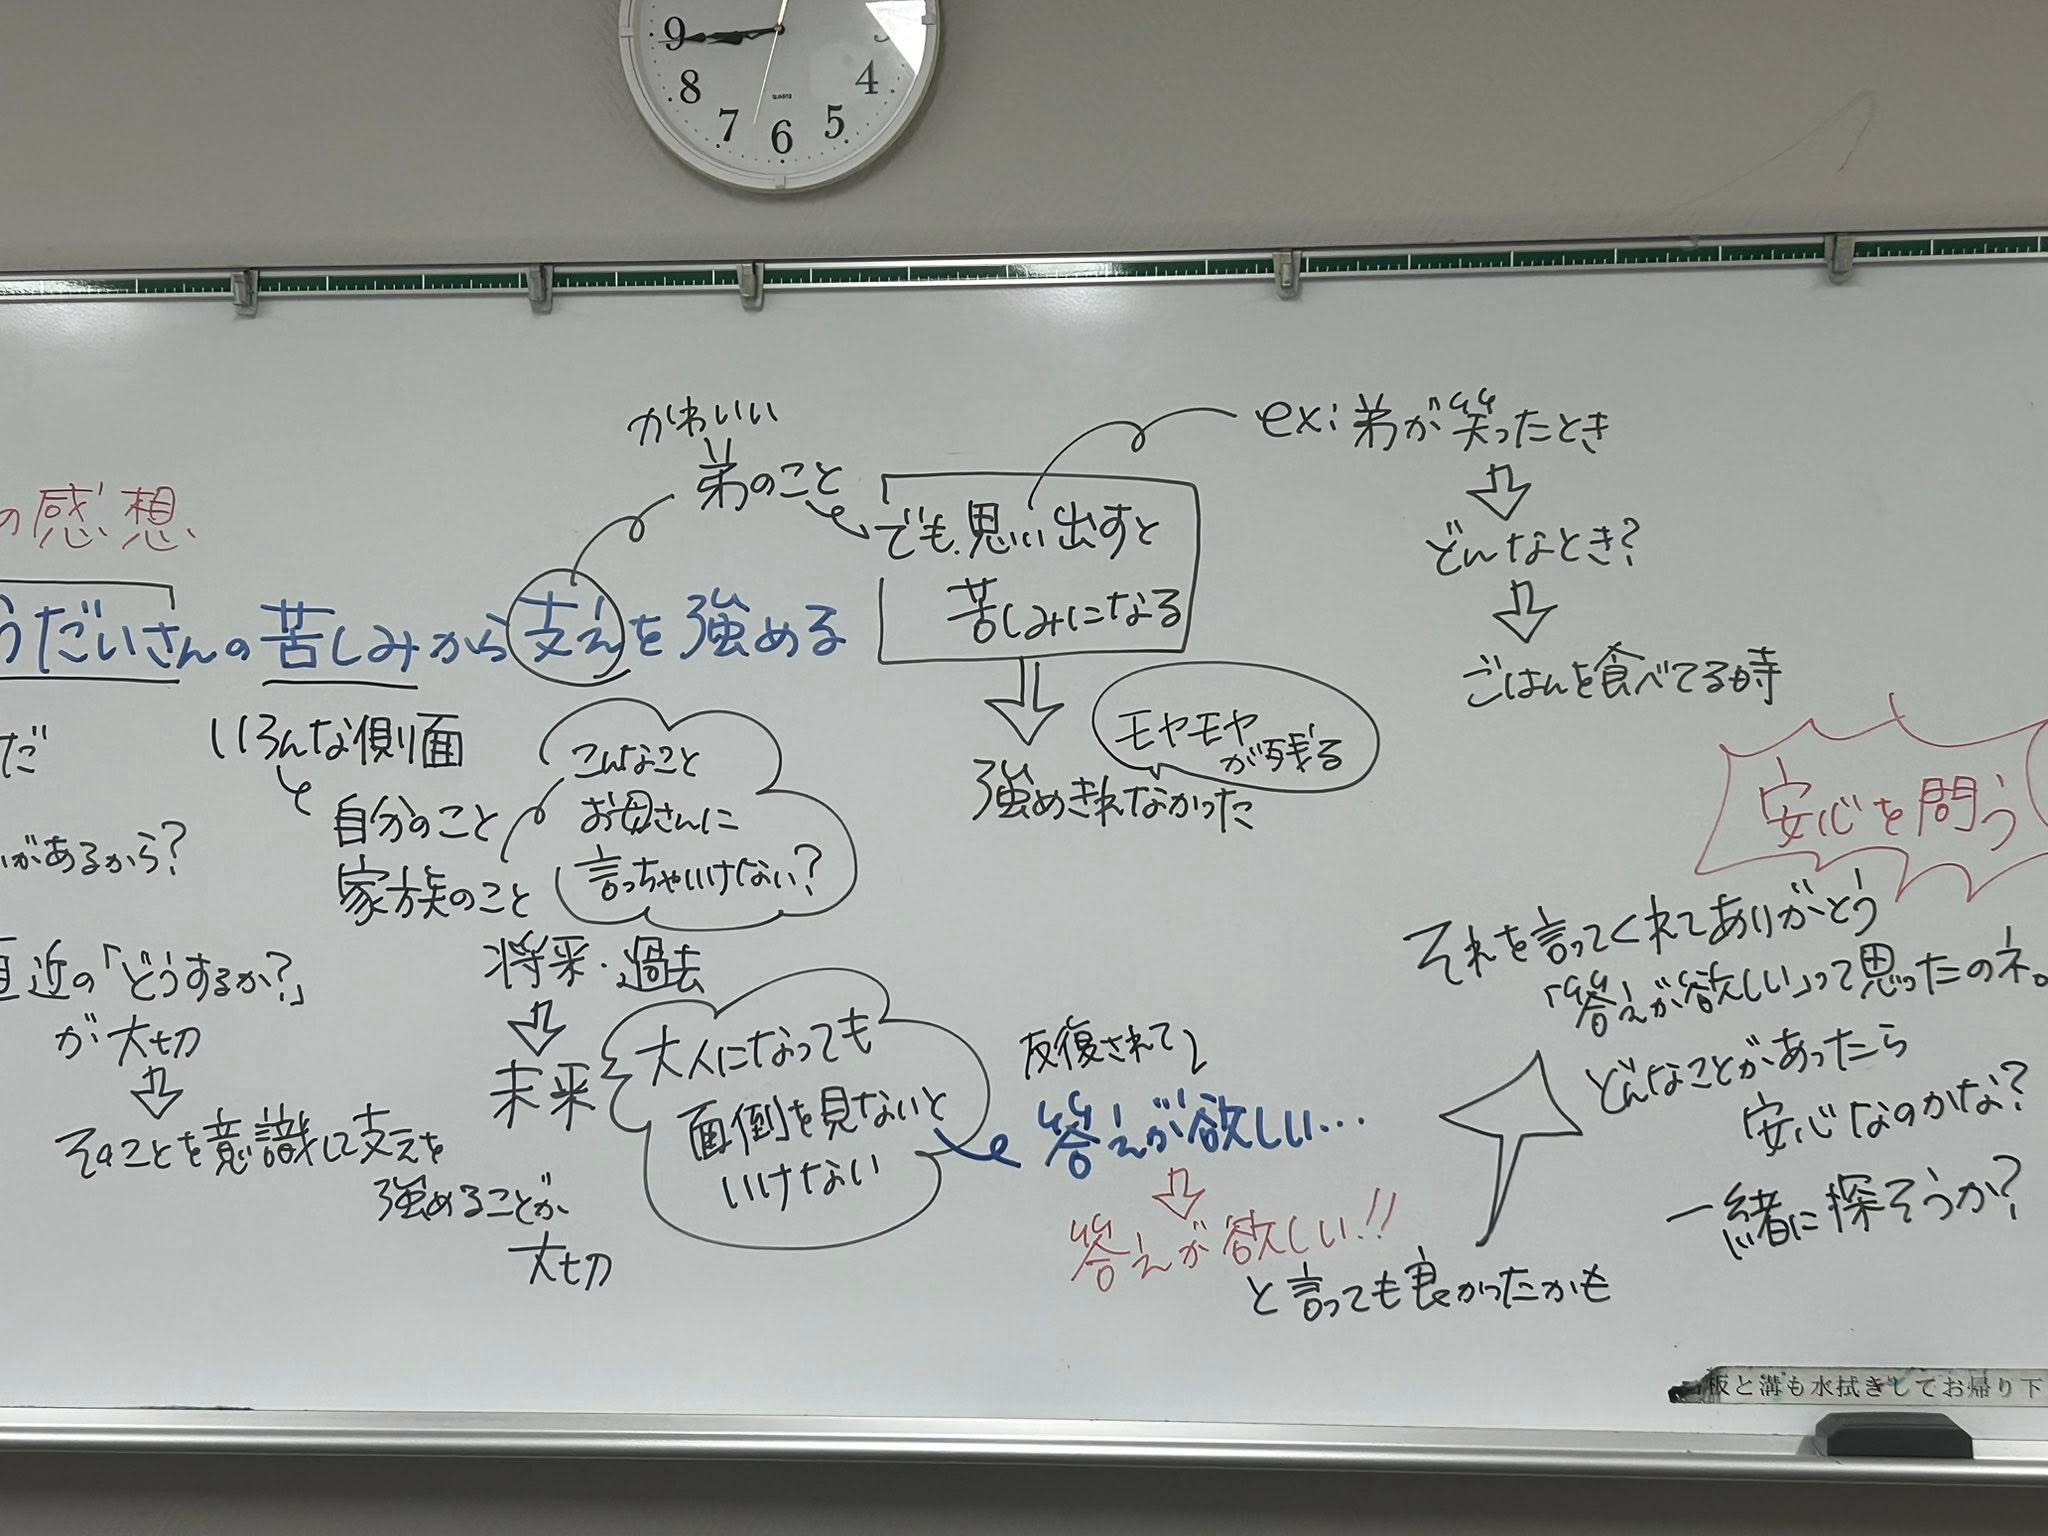 9
8
7
6
5
4
QUARTZ
の感想
うだいさんの苦しみから支えを強める
だ
があるから?
直近の「どうするか?」
が大切
そのことを意識して支えを
強めることが
大切
いろんな側面
自分のこと
家族のこと
将来・過去
未来
こんなこと
お母さんに
言っちゃいけない?
大人になっても
面倒を見ないと
いけない
かわいい
弟のこと
でも思い出すと
苦しみになる
モヤモヤ
が残る
強めきれなかった
ex:弟が笑ったとき
どんなとき?
ごはんを食べてる時
反復されて
答えが欲しい…
答えが欲しい!!
と言っても良かったかも
安心を問う
それを言ってくれてありがとう
「答えが欲しい」って思ったのネ。
どんなことがあったら
安心なのかな?
一緒に探そうか?
板と溝も水拭きしてお帰り下